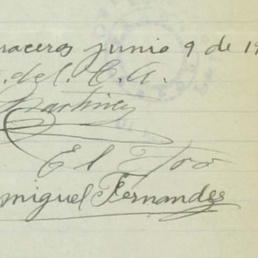 raceros junio 9 de 19
. del. C. A.
Martinez
El Tco
miguel Fernandez